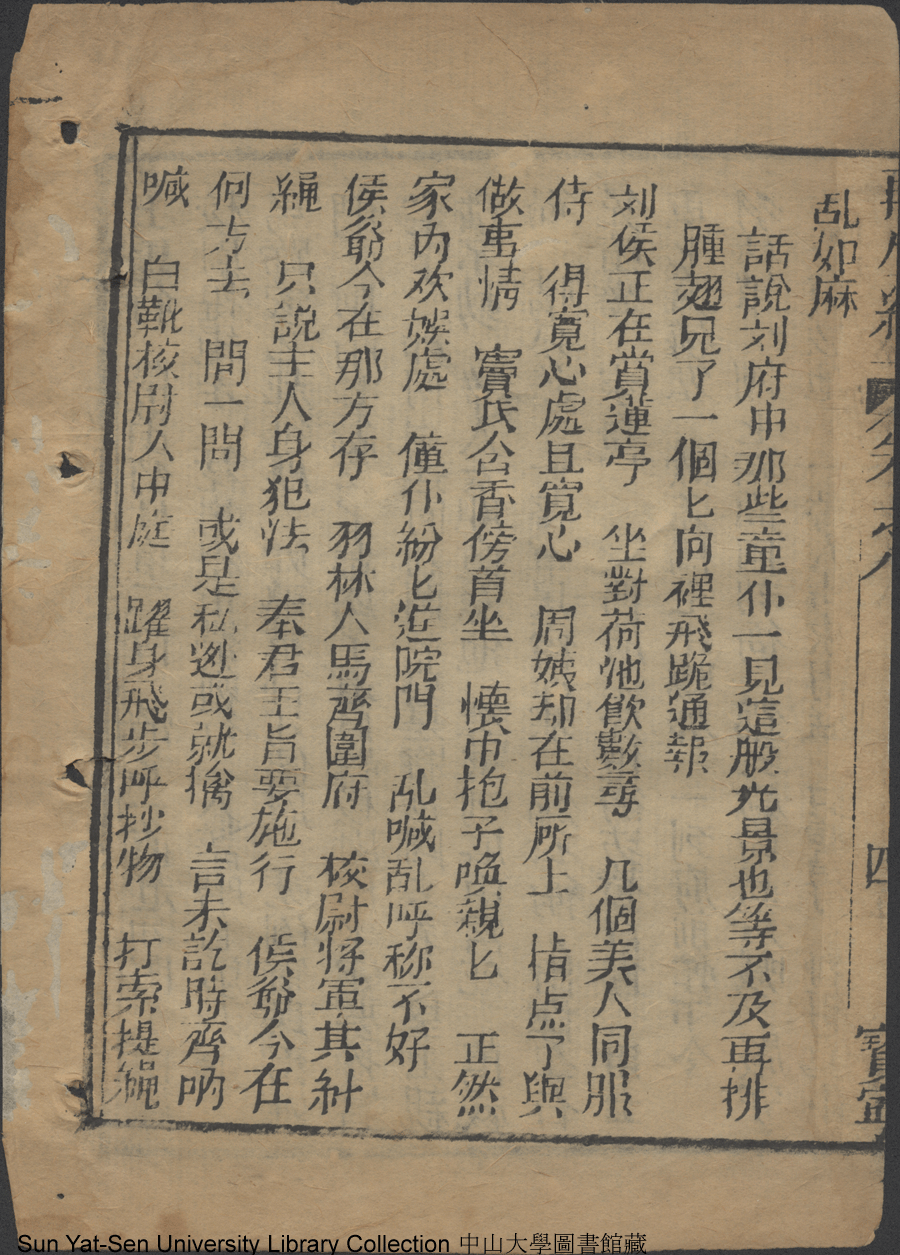 乱如麻
話說刘府中那些童仆一見這般光景也等不及再排
腫翅兄了一個匕向裡飛跪通報
刘侯正在賞蓮亭 坐對荷池飲數尋 几個美人同服
侍 得寬心處且寬心 周姨却在前所上 指点丫與
做事情 竇氏含香傍首坐 懷巾抱子喚親匕 正然
家內欢娛處 僮仆紛匕逰院門 乱喊乱呼称不好
侯爺今在那方存 羽林人馬齊圍府 校尉将軍其糾
繩 只說主人身犯法 奉君王旨要施行 侯爺今在
何方去 問一問 或是私逊或就擒 言未訖時齊吶
喊 白靴核尉入中庭 躍身飛步呼抄物 打索提繩
四
寶寍
Sun Yat-Sen University Library Collection 中山大學圖書館藏